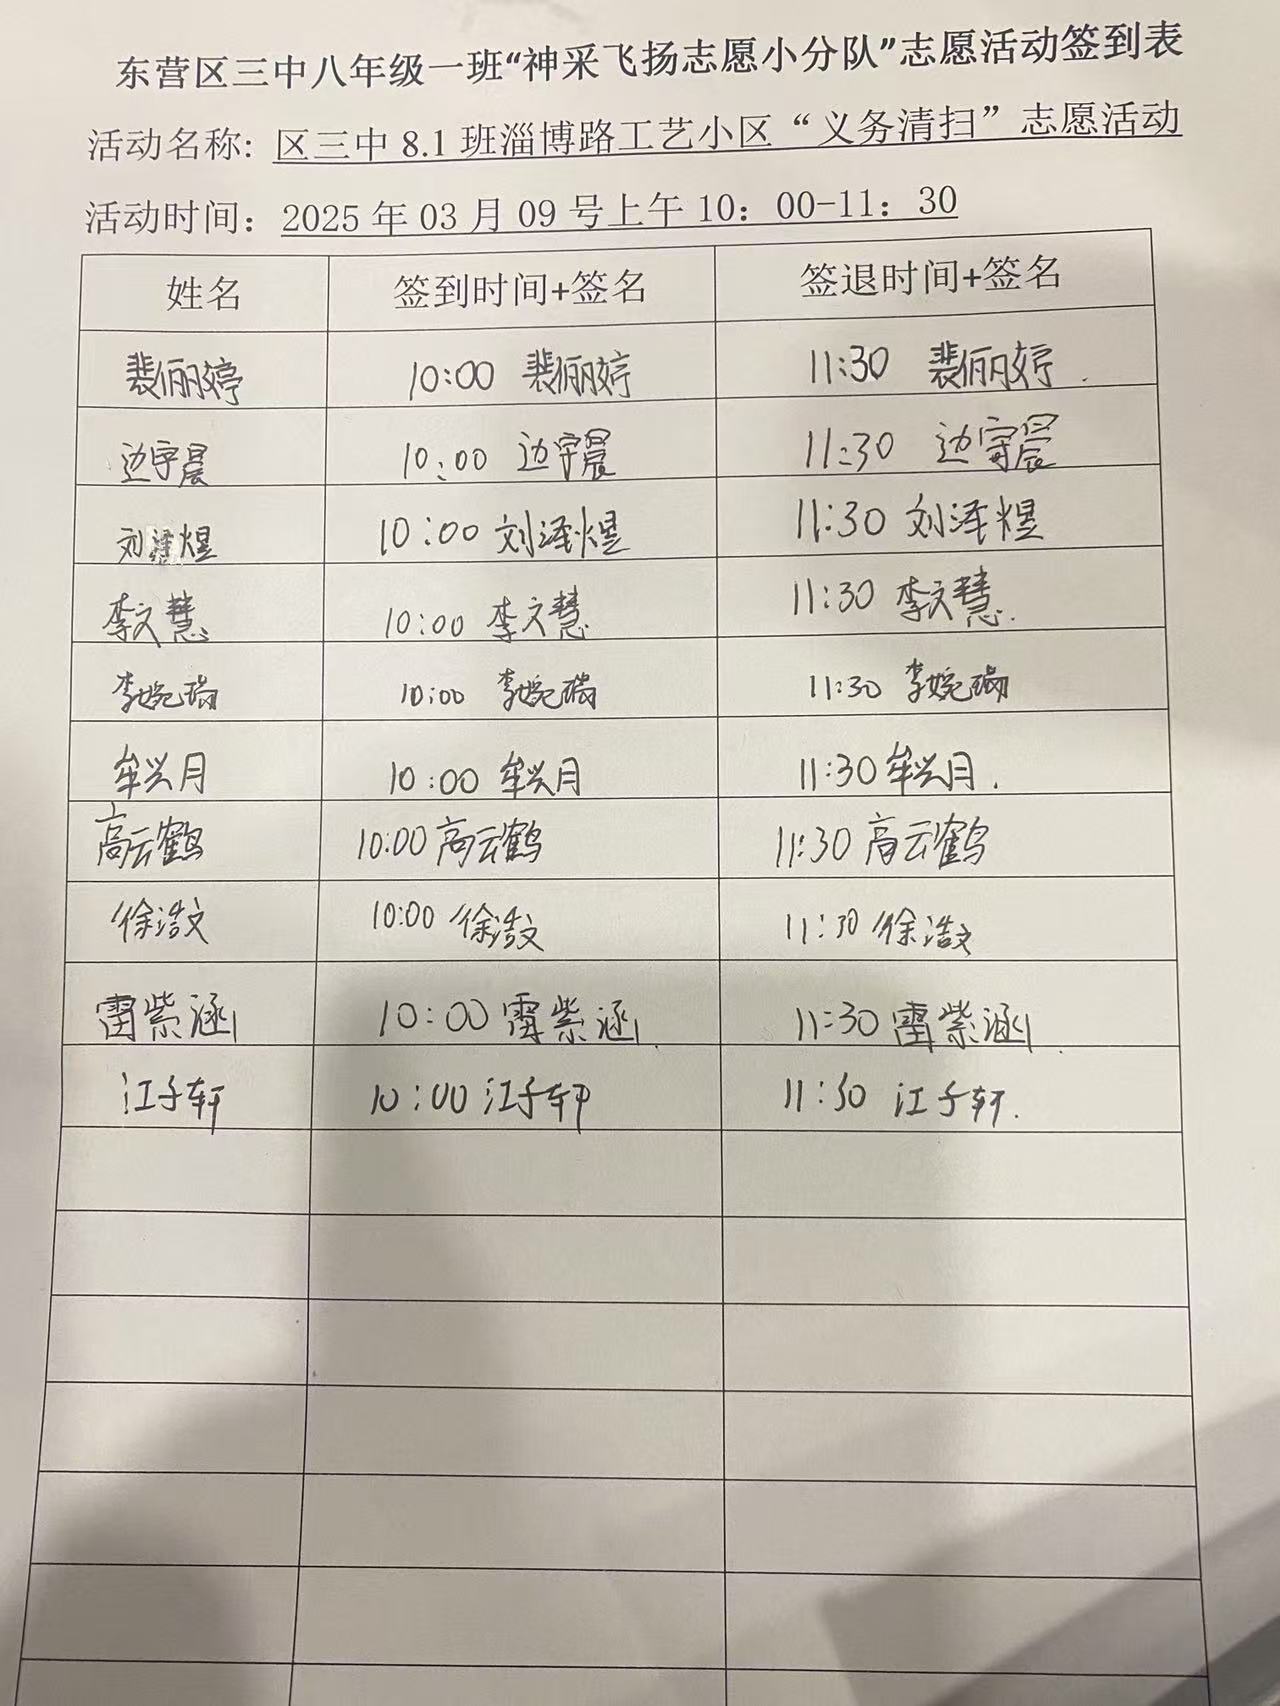 东营区三中八年级一班“神采飞扬志愿小分队”志愿活动签到表
活动名称: 区三中 8.1 班淄博路工艺小区“义务清扫”志愿活动
活动时间：2025 年 03 月 09 号上午 10：00-11：30
姓名 签到时间+签名 签退时间+签名
裴俪婷 10:00 裴俪婷 11:30 裴俪婷.
边宇晨 10:00 边宇晨 11:30 边宇晨
刘泽煜 10:00 刘泽煜 11:30 刘泽煜
李文慧 10:00 李文慧 11:30 李文慧.
李婉瑜 10:00 李婉瑜 11:30 李婉瑜
牟兴月 10:00 牟兴月 11:30 牟兴月.
高云鹤 10:00 高云鹤 11:30 高云鹤
徐浩文 10:00 徐浩文 11:30 徐浩文
雷紫涵 10:00 雷紫涵 11:30 雷紫涵
江子轩 10:00 江子轩 11:30 江子轩.